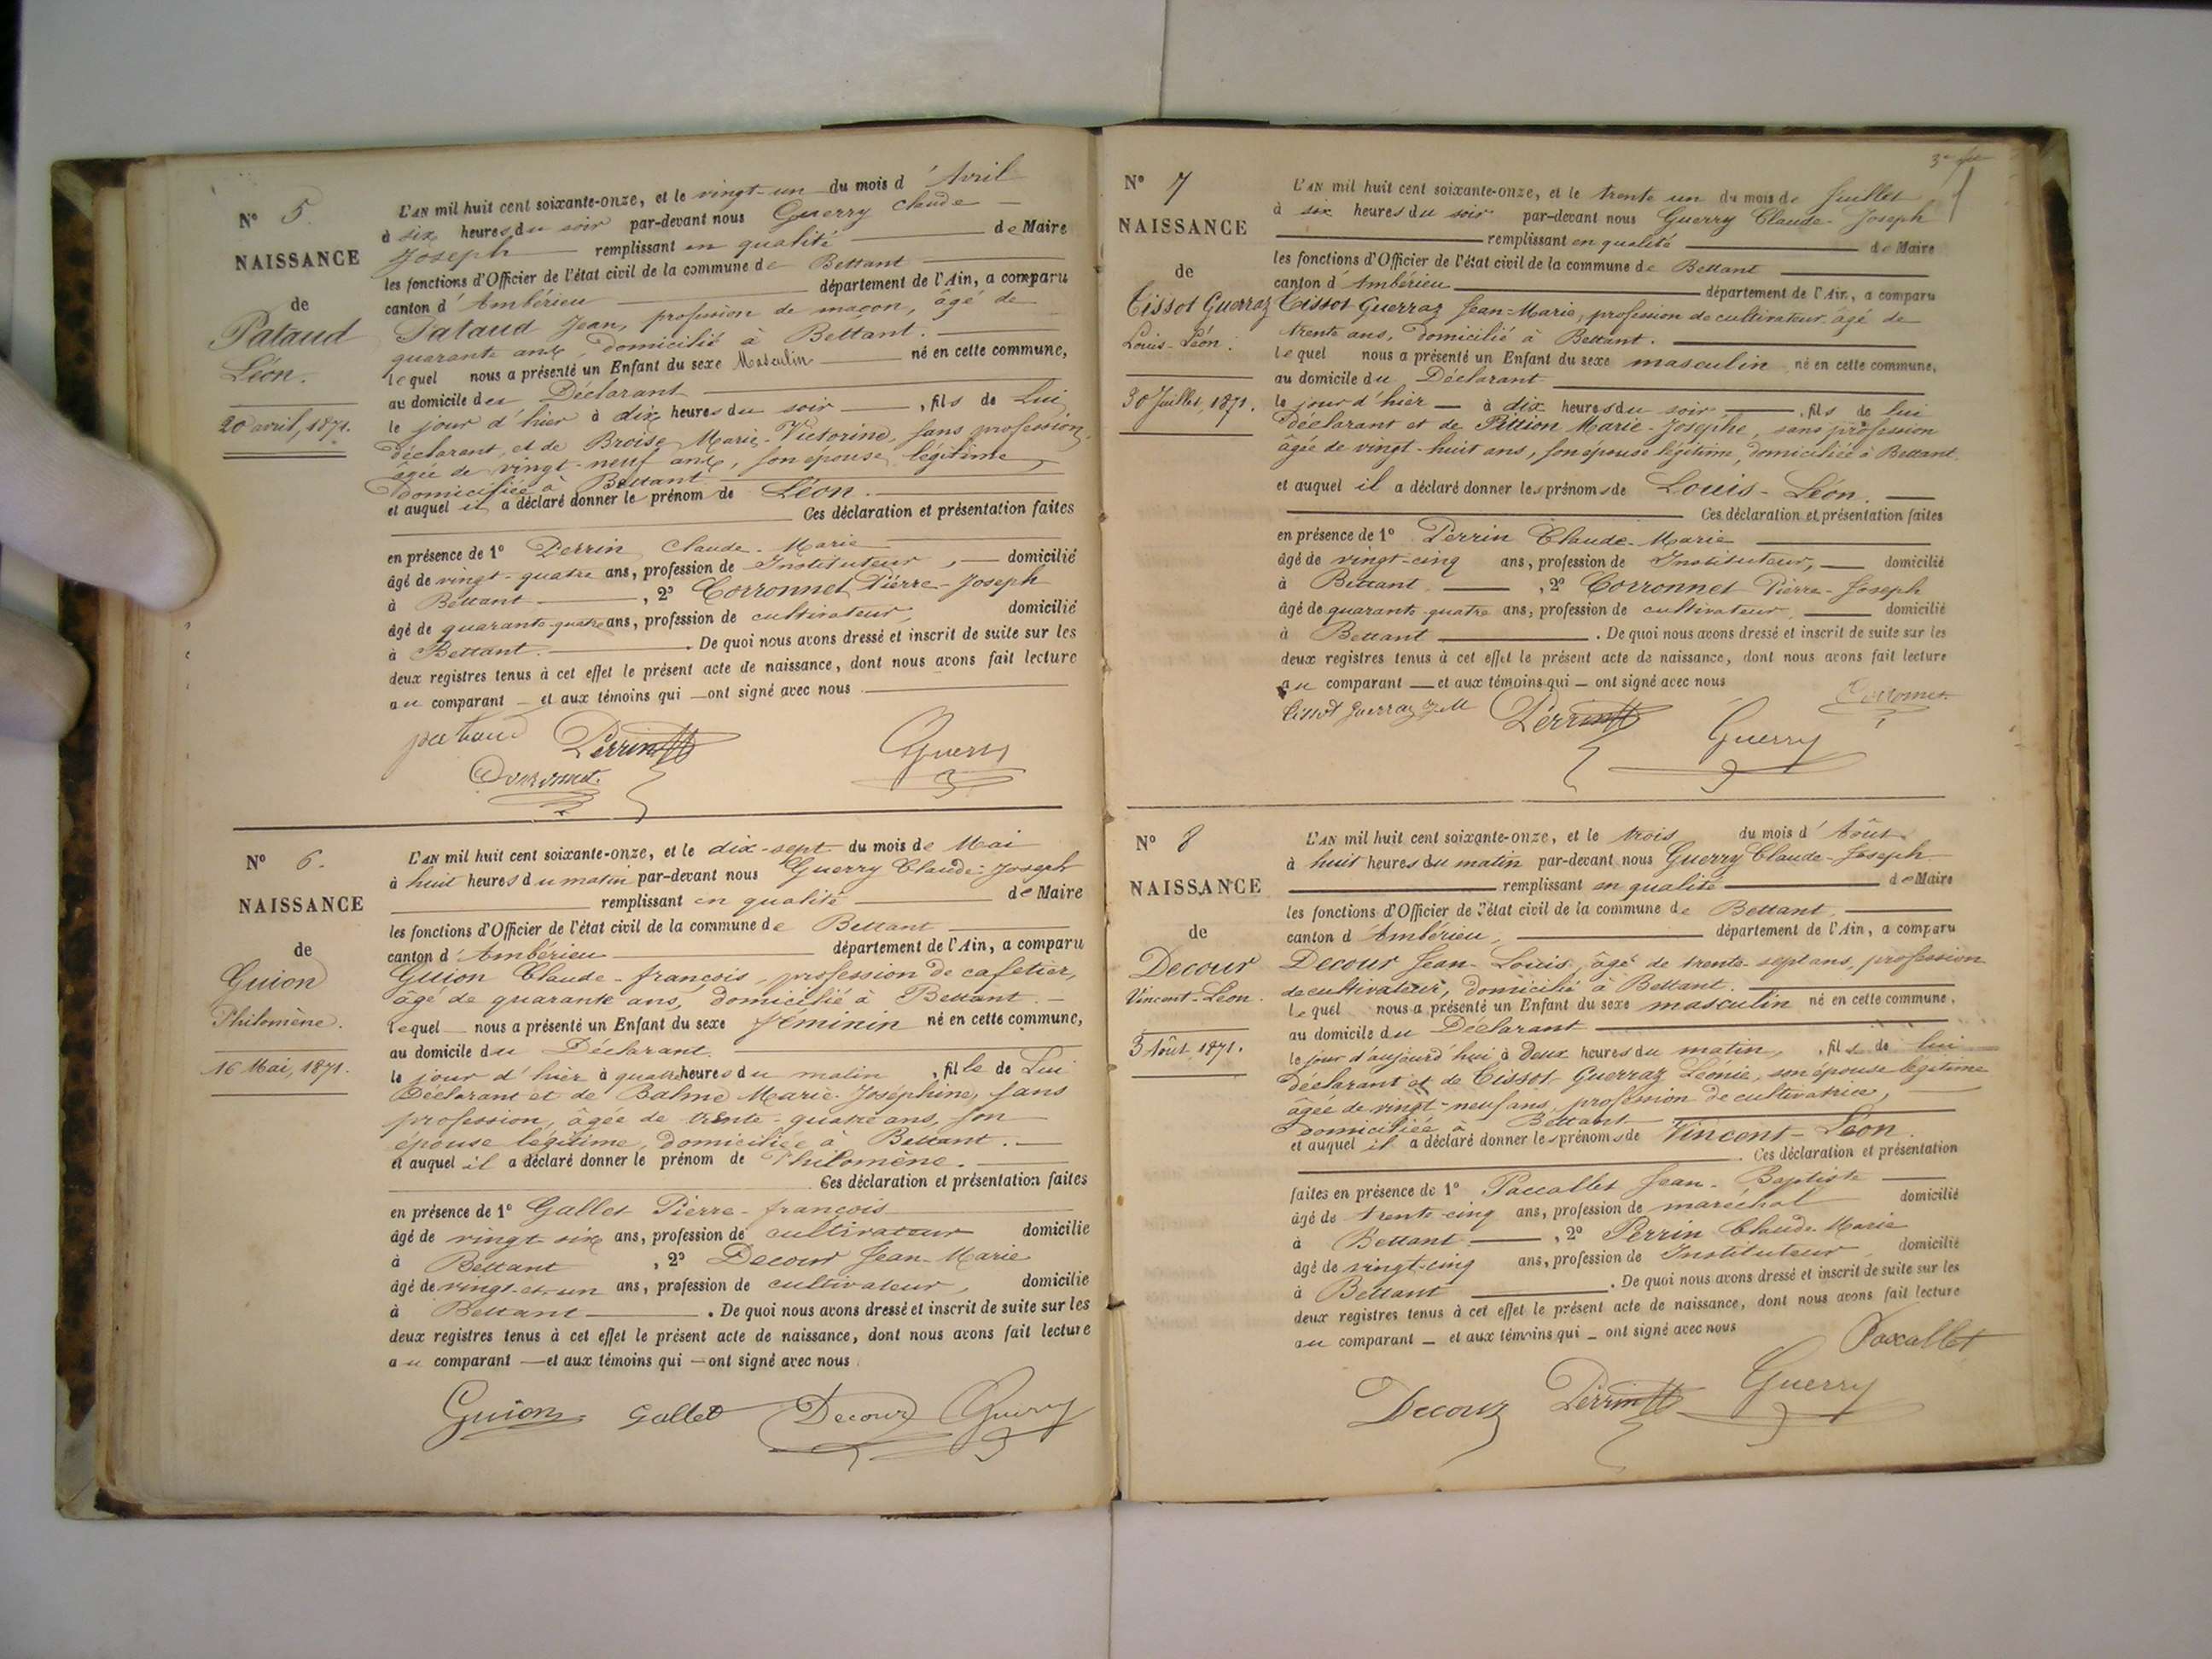 N° 5.
NAISSANCE
de
Pataud
Léon.
20 avril, 1871.
L'AN mil huit cent soixante-onze, et le vingt-un du mois d'Avril
à six heures du soir par-devant nous Guerry Claude
Joseph remplissant en qualité de Maire
les fonctions d'Officier de l'état civil de la commune de Bettant
canton d'Ambérieu département de l'Ain, a comparu
Pataud Jean, profession de maçon, âgé de
quarante ans, domicilié à Bettant.
lequel nous a présenté un Enfant du sexe Masculin né en cette commune,
au domicile du Déclarant
le jour d'hier à dix heures du soir, fils de Lui
déclarant, et de Broise Marie-Victorine, sans profession,
âgée de vingt-neuf ans, son épouse légitime,
domiciliée à Bettant
et auquel il a déclaré donner le prénom de Léon.
Ces déclaration et présentation faites
en présence de 1° Perrin Claude-Marie
âgé de vingt-quatre ans, profession de Instituteur, domicilié
à Bettant, 2° Corronnet Pierre-Joseph
âgé de quarante-quatre ans, profession de cultivateur, domicilié
à Bettant. De quoi nous avons dressé et inscrit de suite sur les
deux registres tenus à cet effet le présent acte de naissance, dont nous avons fait lecture
au comparant et aux témoins qui ont signé avec nous
pataud Perrin Guerry
Corronnet
N° 6.
NAISSANCE
de
Guion
Philomène.
16 Mai, 1871.
L'AN mil huit cent soixante-onze, et le dix-sept du mois de Mai
à huit heures du matin par-devant nous Guerry Claude-Joseph
remplissant en qualité de Maire
les fonctions d'Officier de l'état civil de la commune de Bettant
canton d'Ambérieu département de l'Ain, a comparu
Guion Claude-françois, profession de cafetier,
âgé de quarante ans, domicilié à Bettant.
lequel nous a présenté un Enfant du sexe féminin né en cette commune,
au domicile du Déclarant.
le jour d'hier à quatre heures du matin, fille de Lui
Déclarant et de Balme Marie-Joséphine, sans
profession, âgée de trente-quatre ans, son
épouse légitime, domiciliée à Bettant.
et auquel il a déclaré donner le prénom de Philomène.
Ces déclaration et présentation faites
en présence de 1° Gallet Pierre-françois
âgé de vingt-six ans, profession de cultivateur domicilié
à Bettant, 2° Decour Jean-Marie
âgé de vingt-et-un ans, profession de cultivateur, domicilié
à Bettant. De quoi nous avons dressé et inscrit de suite sur les
deux registres tenus à cet effet le présent acte de naissance, dont nous avons fait lecture
au comparant et aux témoins qui ont signé avec nous
Guion Gallet Decour Guerry
N° 7
NAISSANCE
de
Tissot Guerraz
Louis-Léon.
30 Juillet, 1871.
L'AN mil huit cent soixante-onze, et le trente un du mois de Juillet
à six heures du soir par-devant nous Guerry Claude-Joseph
remplissant en qualité de Maire
les fonctions d'Officier de l'état civil de la commune de Bettant
canton d'Ambérieu département de l'Ain, a comparu
Tissot-Guerraz Jean-Marie, profession de cultivateur, âgé de
trente ans, domicilié à Bettant.
lequel nous a présenté un Enfant du sexe masculin né en cette commune,
au domicile du Déclarant
le jour d'hier à dix heures du soir, fils de lui
déclarant et de Pittion Marie-Josèphe, sans profession
âgée de vingt-huit ans, son épouse légitime, domiciliée à Bettant.
et auquel il a déclaré donner les prénoms de Louis-Léon.
Ces déclaration et présentation faites
en présence de 1° Perrin Claude-Marie
âgé de vingt-cinq ans, profession de Instituteur, domicilié
à Bettant, 2° Corronnet Pierre-Joseph
âgé de quarante-quatre ans, profession de cultivateur, domicilié
à Bettant. De quoi nous avons dressé et inscrit de suite sur les
deux registres tenus à cet effet le présent acte de naissance, dont nous avons fait lecture
au comparant et aux témoins qui ont signé avec nous
Tissot Guerraz J M Perrin Guerry Corronnet
N° 8
NAISSANCE
de
Decour
Vincent-Léon.
3 Août, 1871.
L'AN mil huit cent soixante-onze, et le trois du mois d'Août
à huit heures du matin par-devant nous Guerry Claude-Joseph
remplissant en qualité de Maire
les fonctions d'Officier de l'état civil de la commune de Bettant.
canton d'Ambérieu, département de l'Ain, a comparu
Decour Jean-Louis, âgé de trente-sept ans, profession
de cultivateur, domicilié à Bettant.
Lequel nous a présenté un Enfant du sexe masculin né en cette commune.
au domicile du Déclarant
le jour d'aujourd'hui à deux heures du matin, fils de lui
déclarant et de Tissot-Guerraz Léonie, son épouse légitime
âgée de vingt-neuf ans, profession de cultivatrice,
domiciliée à Bettant
et auquel il a déclaré donner les prénoms de Vincent-Léon.
Ces déclaration et présentation
faites en présence de 1° Paccallet Jean-Baptiste
âgé de trente-cinq ans, profession de maréchal domicilié
à Bettant, 2° Perrin Claude-Marie
âgé de vingt-cinq ans, profession de Instituteur, domicilié
à Bettant. De quoi nous avons dressé et inscrit de suite sur les
deux registres tenus à cet effet le présent acte de naissance, dont nous avons fait lecture
au comparant et aux témoins qui ont signé avec nous
Paccallet
Decour Perrin Guerry